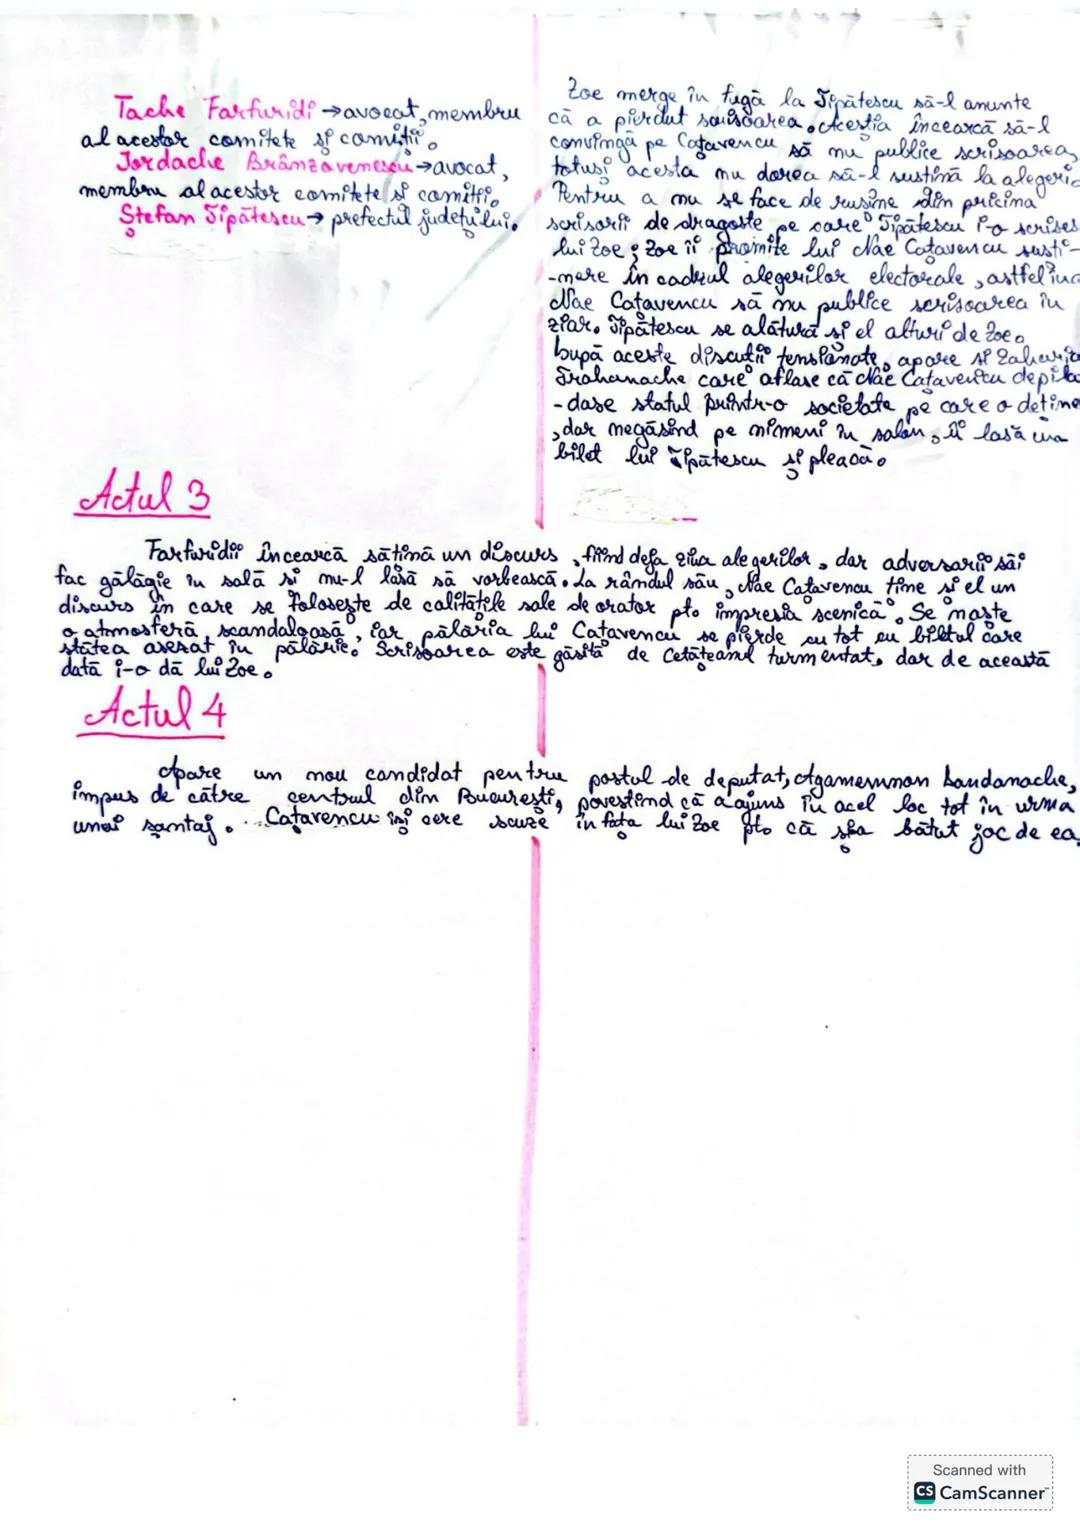 Tache Farfuridi → avocat, membru
al acestor comitete și comiții.
Iordache Brânzovenescu → avocat,
membru al acestor comitete și comiții.
Ștefan Tipătescu → prefectul județului.
Zoe merge în fugă la Tipătescu să-l anunțe
că a pierdut scrisoarea. Aceștia încearcă să-l
convingă pe Cațavencu să nu publice scrisoarea,
totuși acesta nu dorea să-l susțină la alegeri
Pentru a nu se face de rușine din pricina
scrisorii de dragoste pe care Tipătescu i-o scrises
lui Zoe; Zoe îi promite lui Nae Cațavencu susți-
-nere în cadrul alegerilor electorale, astfel înc
Nae Cațavencu să nu publice scrisoarea în
ziar. Tipătescu se alătură și el alturi de Zoe.
După aceste discuții tensionate, apare și Zaharia
Trahanache care aflase că Nae Cațavencu depila
-dase statul printr-o societate pe care o deține
, dar negăsind pe nimeni în salon, îi lasă un
bilet lui Tipătescu și pleacă.
Actul 3
Farfuridii încearcă să țină un discurs, fiind deja ziua alegerilor, dar adversarii săi
fac gălăgie în sală și nu-l lasă să vorbească. La rândul său, Nae Cațavencu ține și el un
discurs în care se folosește de calitățile sale de orator ptr impresia scenică. Se naște
o atmosferă scandaloasă, iar pălăria lui Cațavencu se pierde cu tot cu biletul care
stătea așezat în pălărie. Scrisoarea este găsită de Cetățeanul turmentat, dar de această
dată i-o dă lui Zoe.
Actul 4
Apare un nou candidat pentru postul de deputat, Agamemnon Dandanache,
impus de către centrul din București, povestind că a ajuns în acel loc tot în urma
unui șantaj. Cațavencu își cere scuze în fața lui Zoe ptr că și-a bătut joc de ea,
Scanned with
CS CamScanner